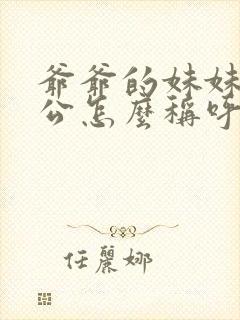 爺爺的妹妹
公怎麼稱呼
任麗娜